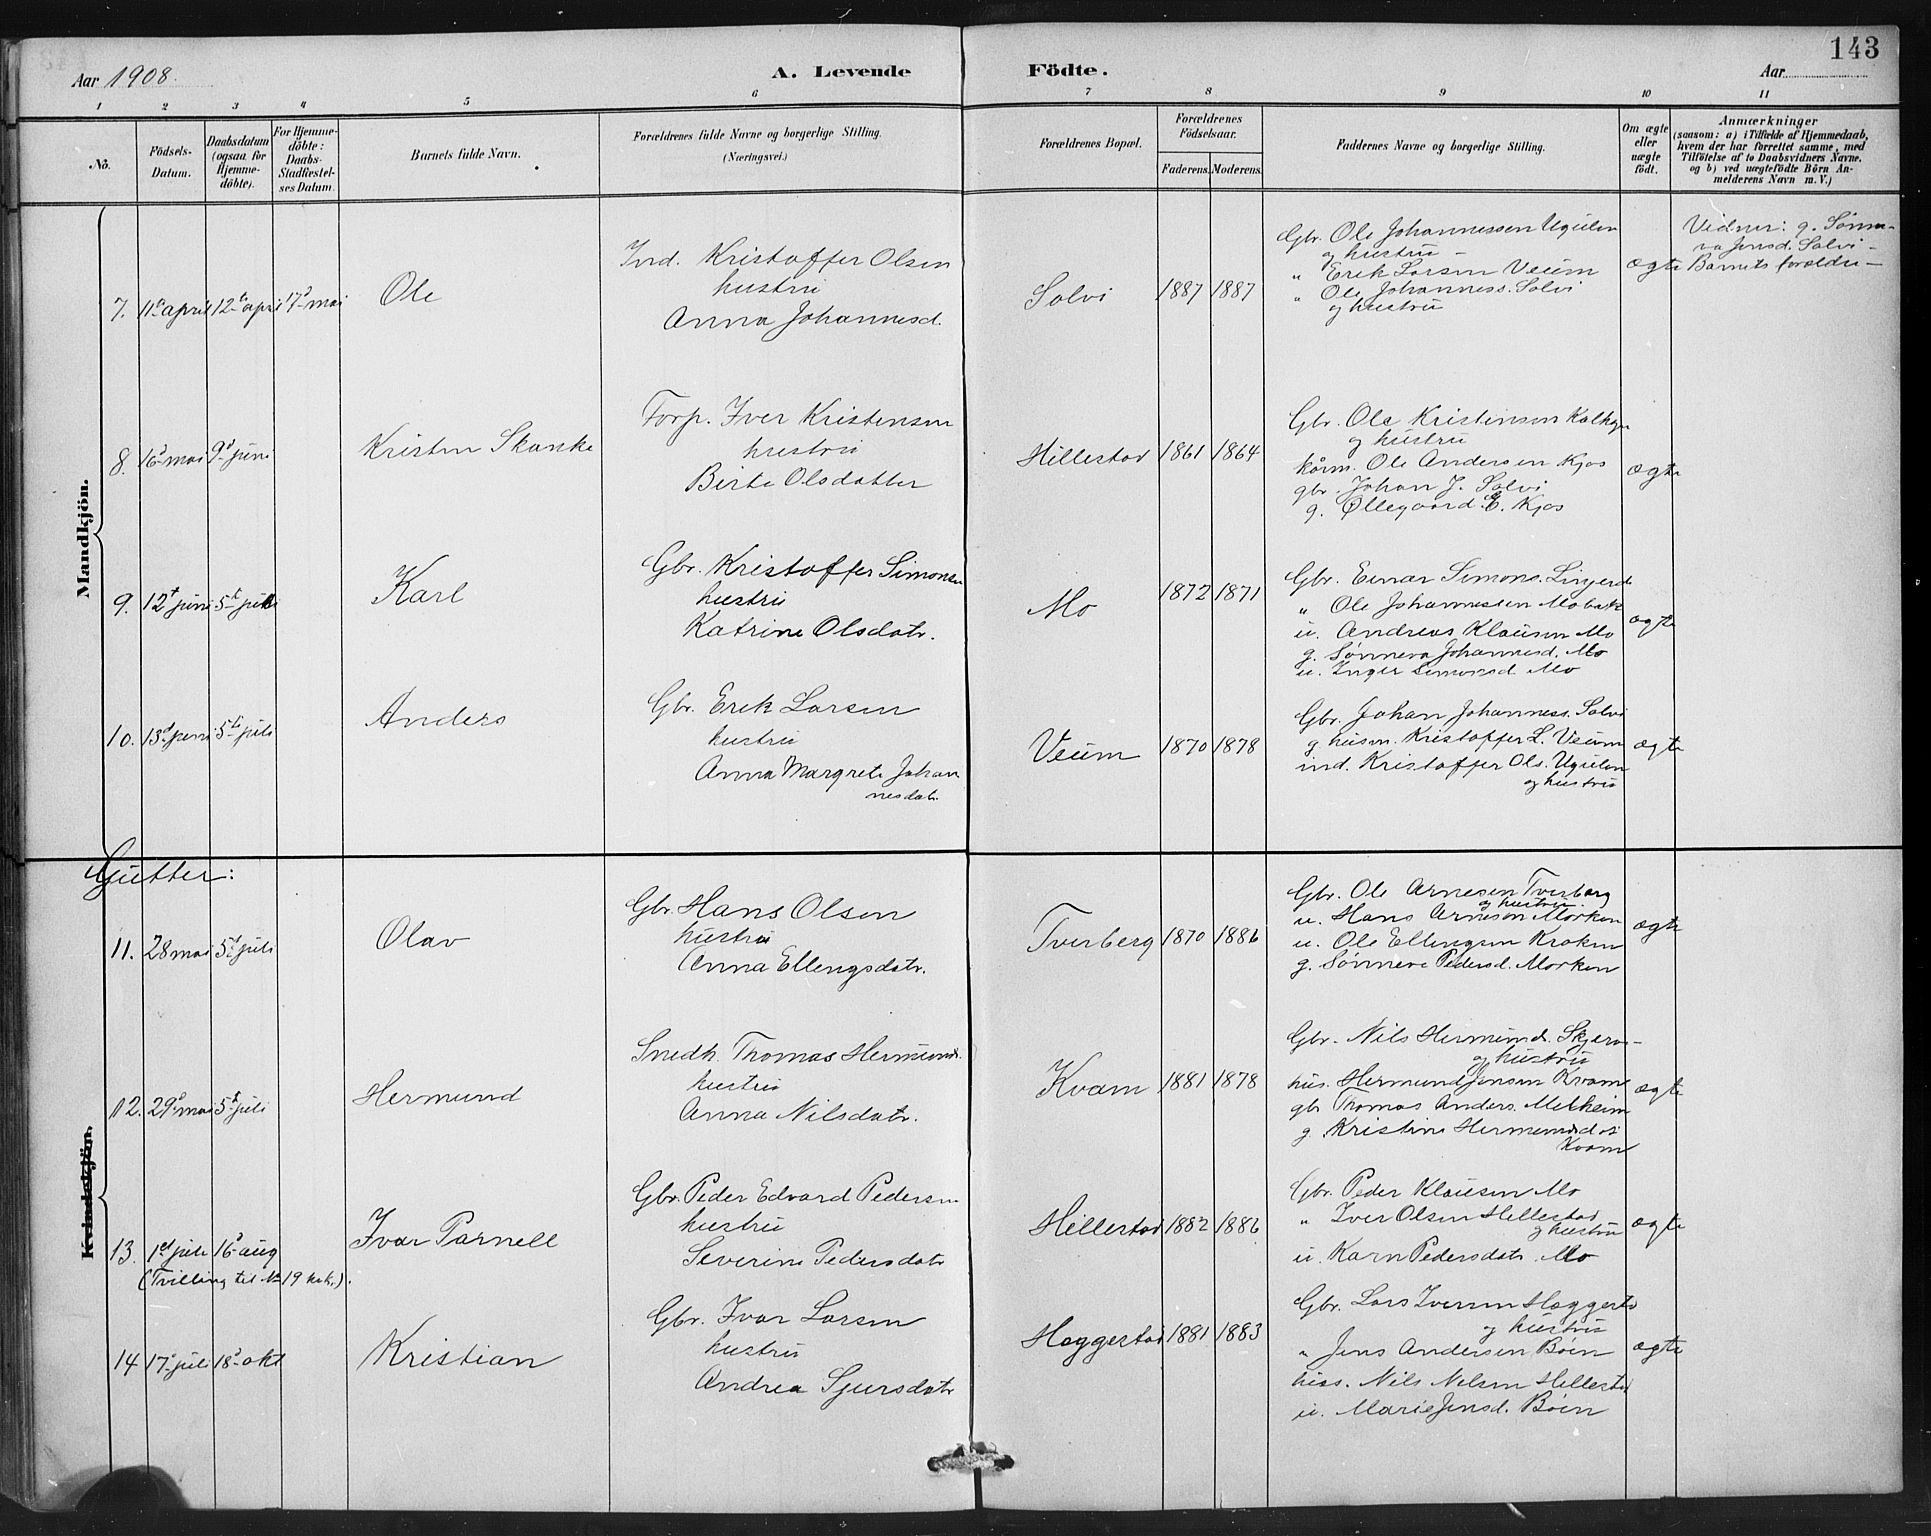 143
Aar 1908.
A. Levende Födte.
Aar
1 2 3 4 5 6 7 8 9 10 11
No.
Födsels-
Datum.
Daabsdatum
(ogsaa for
Hjemme-
döbte).
For Hjemme-
döbte:
Daabs-
Stadfestel-
ses Datum.
Barnets fulde Navn.
Forældrenes fulde Navne og borgerlige Stilling.
(Næringsvei.)
Forældrenes Bopæl.
Forældrenes
Födselsaar.
Faderens. Moderens.
Faddernes Navne og borgerlige Stilling.
Om ægte
eller
uægte
födt.
Anmærkninger
(saasom: a) i Tilfælde af Hjemmedaab,
hvem der har forrettet samme, med
Tilföielse af to Daabsvidners Navne,
og b) ved uægtefödte Börn An-
melderens Navn m. V.)
Mandkjön.
7. 11te april 12te april 17d mai
Ole
Ind. Kristoffer Olsen
hustru
Anna Johannesd.
Solvi
1887 1887
Gbr. Ole Johannessen Ugulen
og hustru
" Erik Larsen Veum
" Ole Johanness. Solvi
og hustru
ægte
Vidner: g. Sønne-
va Jensd. Solvi -
Barnets forældre -
8. 16d mai 9d juni
Kristen Skanke
Forp. Iver Kristensen
hustru
Birte Olsdatter
Hillestad
1861 1864
Gbr. Ole Kristensen
og hustru
Ole Andersen Kjos
gbr. Johan J. Solvi
g. Øllegaard E. Kjos
ægte
9. 12t juni 5te juli
Karl
Gbr. Kristoffer Simonsen
hustru
Katrine Olsdatr.
Mo
1872 1871
Gbr. Einar Simons.
" Ole Johannessen Mobak
u. Andreas Klausen Mo
g. Sønneva Johannesd. Mo
u. Inger Simonsd. Mo
ægte
10. 13d juni 5te juli
Anders
Gbr. Erik Larsen
hustru
Anna Margrete Johan
nesdatr.
Veum
1870 1878
Gbr. Johan Johanness. Solvi
g. husm. Kristoffer L. Veum
ind. Kristoffer Ols. Ugulen
og hustru
ægte
Gutter:
Kvindekjön.
11. 28 mai 5t juli
Olav
Gbr. Hans Olsen
hustru
Anna Ellengsdatr.
Tverberg
1870 1886
Gbr. Ole Arnesen Tverberg
og hustru.
u. Hans Arneson Morken
u. Ole Ellengsen Kroken
g. Sønneve Pedersd. Morken
ægte
12. 29d mai 5t juli
Hermund
Snedk. Thomas Hermunds.
hustru
Anna Nilsdatr.
Kvam
1881 1878
Gbr. Nils Hermunds.
og hustru
hus. Hermund Jensen Kvam
gbr Thomas Anders. Melheim
g. Kristine Hermundsd.
Kvam
ægte
13. 1st juli 16d aug
(Tvilling til No 19 kvk.).
Ivar Parnell
Gbr. Peder Edvard Pedersen
hustru
Severine Pedersdatr
Hillestad
1882 1886
Gbr. Peder Klausen Mo
" Iver Olsen Hillestad
og hustru
u. Karn Pedersdatr. Mo
ægte
14 17d juli 18d okt
Kristian
Gbr. Ivar Larsen
hustru
Andrea Sjursdatr
Haggestad
1881 1883
Gbr. Lars Iversen Haggestd
og hustru
" Jens Andersen Böen
Nils Nilsen Hillestad
u. Marie Jensd. Böen
ægte